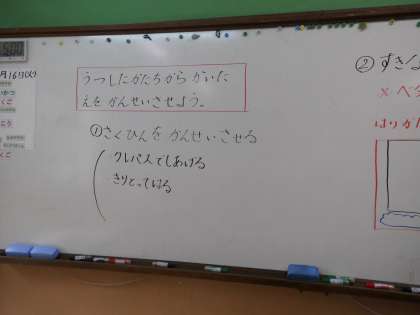 うつしたかたちから かいた
えを かんせいさせよう。
①さくひんを かんせいさせる
クレパスでしあげる
きりとってはる
②すき
×
はりか
月16日(火)